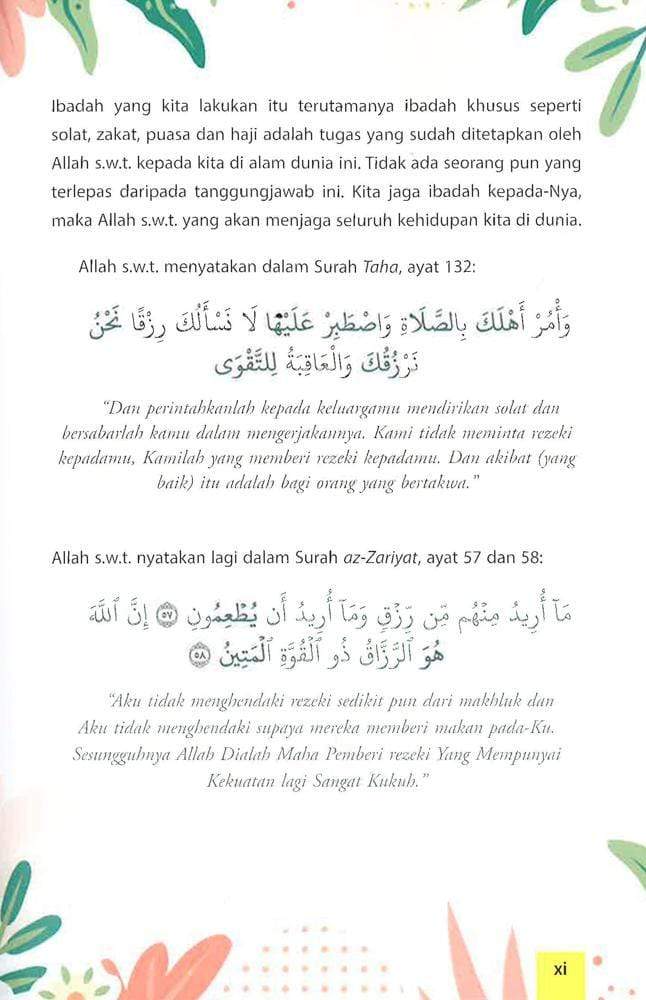 Ibadah yang kita lakukan itu terutamanya ibadah khusus seperti
solat, zakat, puasa dan haji adalah tugas yang sudah ditetapkan oleh
Allah s.w.t. kepada kita di alam dunia ini. Tidak ada seorang pun yang
terlepas daripada tanggungjawab ini. Kita jaga ibadah kepada-Nya,
maka Allah s.w.t. yang akan menjaga seluruh kehidupan kita di dunia.
Allah s.w.t. menyatakan dalam Surah Taha, ayat 132:
وَأْمُرْ أَهْلَكَ بِالصَّلَاةِ وَاصْطَبِرْ عَلَيْهَا لَا نَسْأَلُكَ رِزْقًا نَحْنُ
نَرْزُقُكَ وَالْعَاقِبَةُ لِلتَّقْوَى
“Dan perintahkanlah kepada keluargamu mendirikan solat dan
bersabarlah kamu dalam mengerjakannya. Kami tidak meminta rezeki
kepadamu, Kamilah yang memberi rezeki kepadamu. Dan akibat (yang
baik) itu adalah bagi orang yang bertakwa.”
Allah s.w.t. nyatakan lagi dalam Surah az-Zariyat, ayat 57 dan 58:
مَآ أُرِيدُ مِنْهُم مِّن رِّزْقٍ وَمَآ أُرِيدُ أَن يُطْعِمُونِ ۝٥٧ إِنَّ ٱللَّهَ
هُوَ ٱلرَّزَّاقُ ذُو ٱلْقُوَّةِ ٱلْمَتِينُ ۝٥٨
“Aku tidak menghendaki rezeki sedikit pun dari makhluk dan
Aku tidak menghendaki supaya mereka memberi makan pada-Ku.
Sesungguhnya Allah Dialah Maha Pemberi rezeki Yang Mempunyai
Kekuatan lagi Sangat Kukuh.”
xi